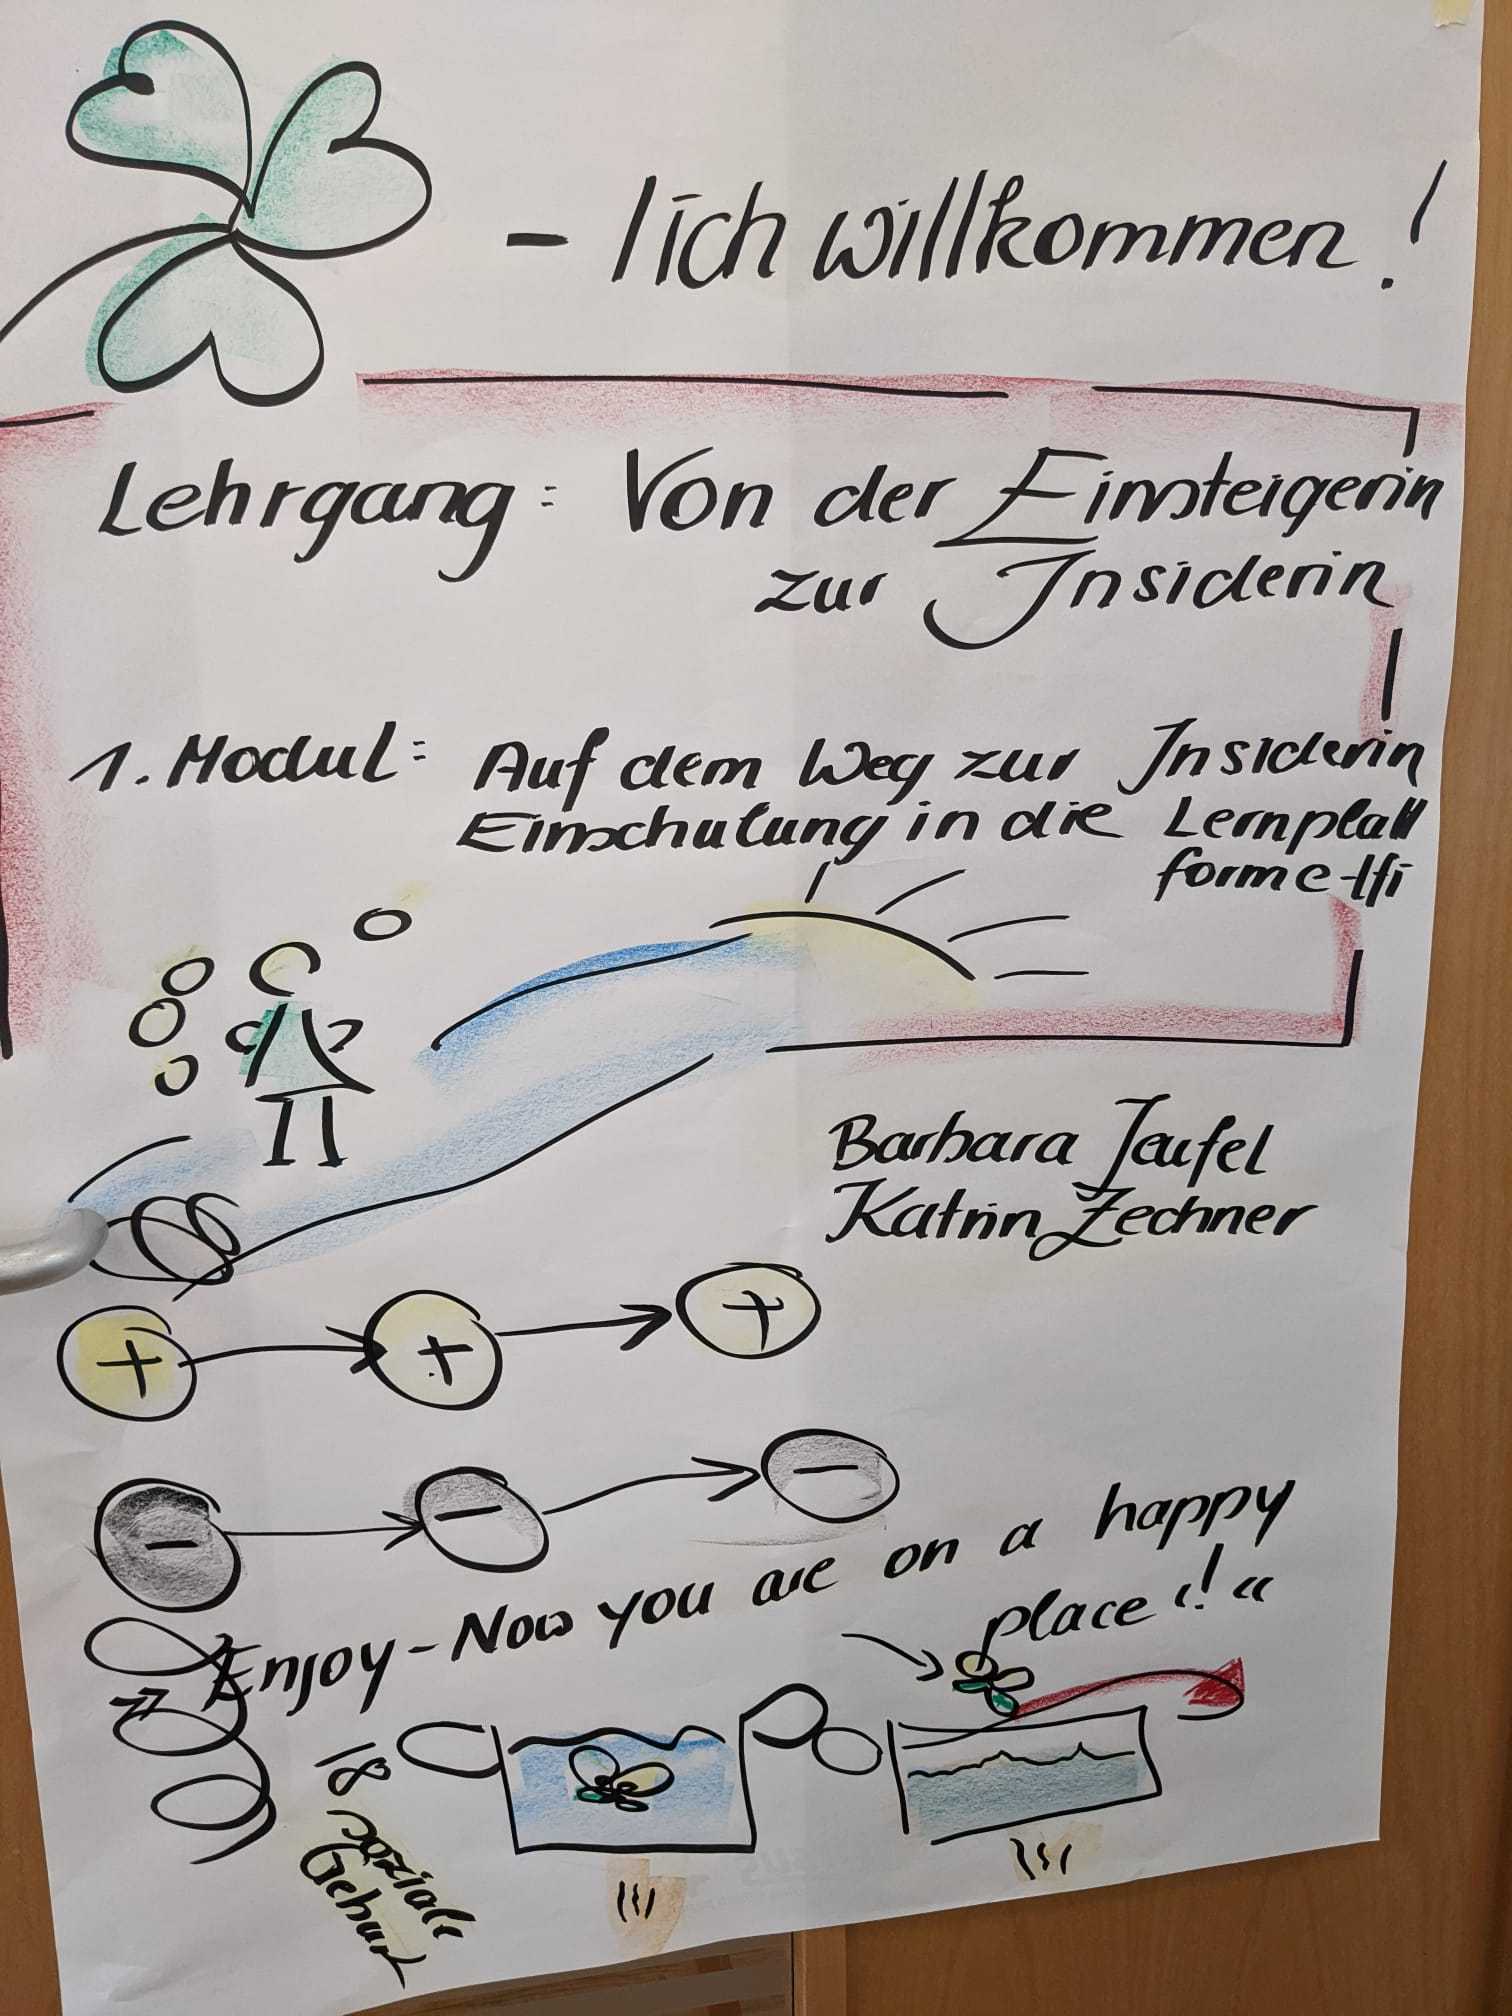 - lich willkommen!
Lehrgang: Von der Einsteigerin
zur Insiderin
1. Modul: Auf dem Weg zur Insiderin
Einschulung in die Lernplatt
form e-lfi
Barbara Teufel
Katrin Zechner
+ + +
- - -
"Enjoy - Now you are on a happy
place"!"
18
soziale
Geburt